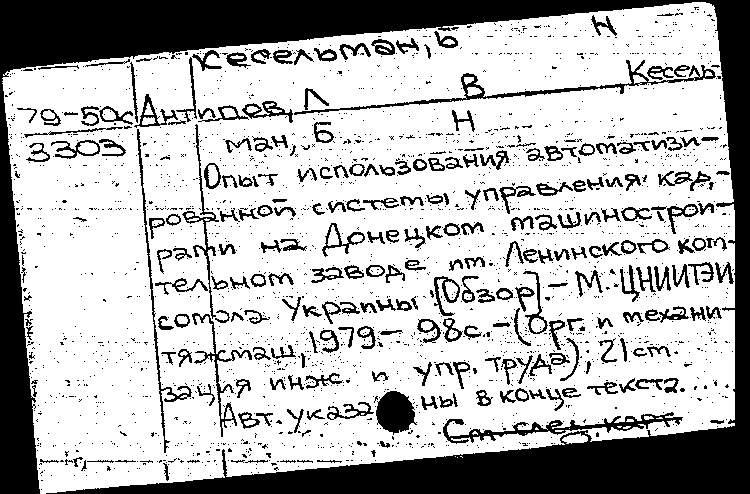 Кесельман, Б Н
79-50с Антипов, Л В , Кесель-
3303 ман, Б Н
Опыт использования автоматизи-
рованной системы управления кад-
рами на Донецком машинострои-
тельном заводе им. Ленинского ком-
сомола Украины : [Обзор]. - М. : ЦНИИТЭИ
тяжмаш, 1979. - 98с. - (Орг. и механи-
зация инж. и упр. труда) ; 21 см.
Авт. указаны в конце текста.
См. след. карт.